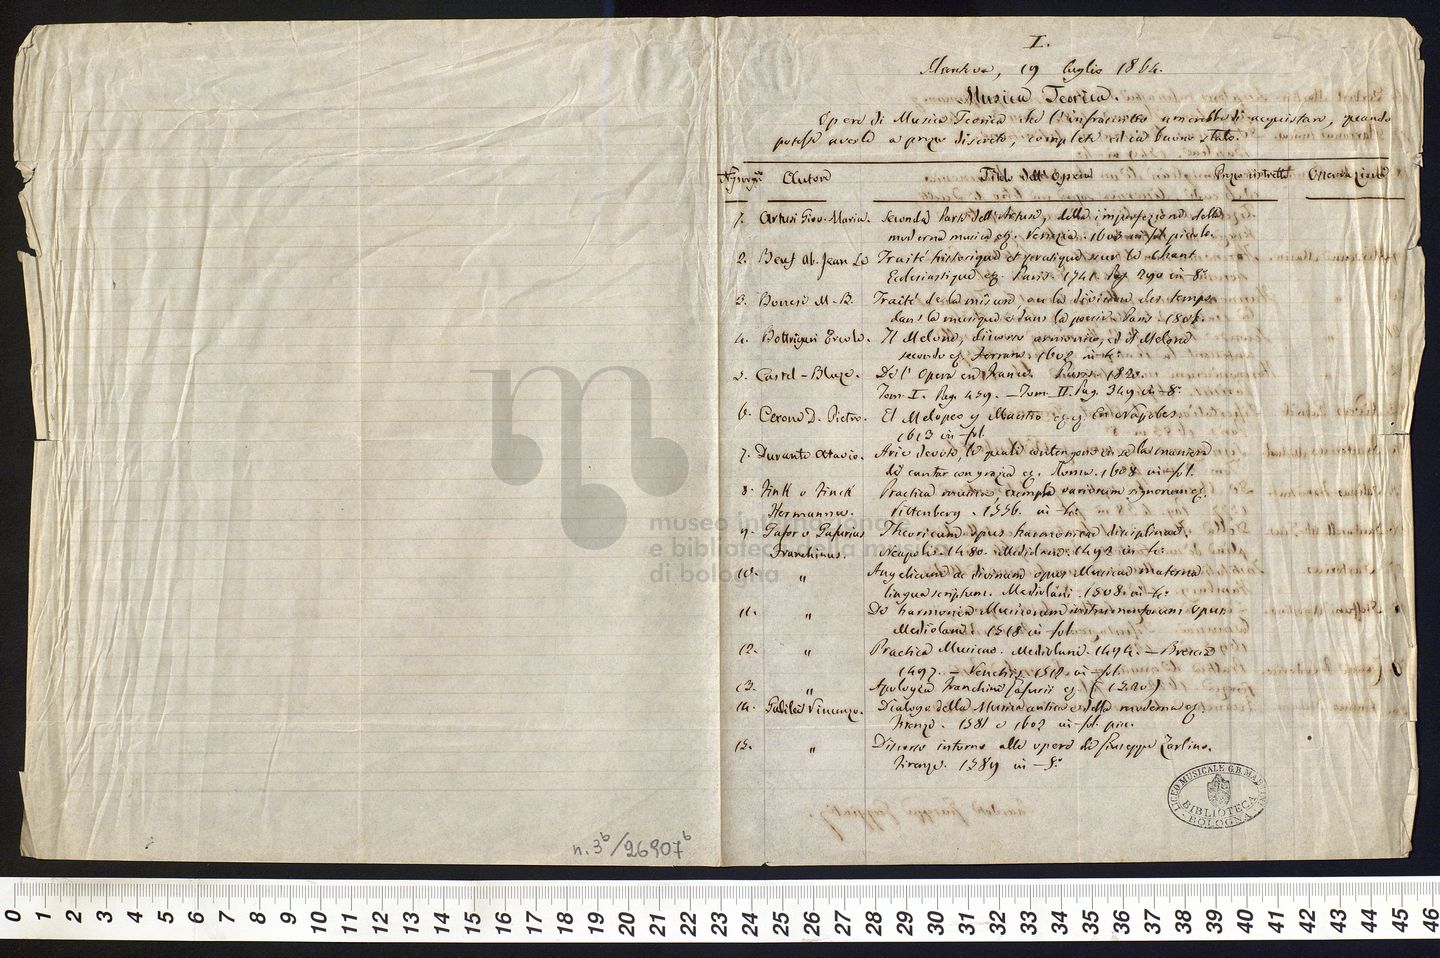 I.
Mantova, 19 luglio 1864.
Musica Teorica.
Opere di Musica Teorica che l'infrascritto amerebbe di acquistare, quando
potesse averle a prezzo discreto, complete ed in buono stato.
Autore Titolo dell'Opera Prezzo ristretto Osservazioni
1. Artusi Giov. Maria. Seconda Parte dell'Artusi, della imperfezione della
moderna musica eg. Venezia. 1603 in fol. piccolo.
2. Beuf ab. Jean Le Traité historique et pratique sur le Chant
Ecclesiastique eg. Paris. 1741. Pag. 290 in-8°
3. Bonesi M-B. Traité de la mésure, ou la division des temps
dans la musique et dans la poesie. Paris 1806.
4. Bottrigari Ercole. Il Melone, discorso armonico, ed il Melone
secondo eg. Ferrara. 1602 in 4°
5. Castel-Blaze. De l'Opera en France. Paris. 1820.
Tom. I. Pag. 459. - Tom. II. Pag. 349 in-8°
6. Cerone D. Pietro. El Melopeo y Maestro eg. En Napoles
1613 in-fol.
7. Durante Otavio. Arie devote, le quali contengono in se la maniera
di cantar con grazia eg. Roma. 1608 in-fol.
8. Fink o Finck Practica musica, exempla variorum signorum eg.
Hermannu. Vittenberg. 1556. in-4°
9. Gafor o Gafurius Theoricum opus harmonicae disciplinae.
Franchinus. Neapolis. 1480. Mediolani. 1492 in-4°
10. " Angelicum ac divinum opus Musicae materna
lingua scriptum. Mediolani. 1508. in-4°
11. " De harmonica Musicorum instrumentorum opus.
Mediolani. 1518 in-fol.
12. " Practica Musicae. Mediolani. 1494. - Brescia
1497. - Venetiis 1512 in-fol.
13. " Apologia Franchini Gafurii eg. (1520)
14. Galilei Vincenzo. Dialogo della Musica antica e della moderna eg.
Firenze. 1581 e 1602 in-fol. picc.
15. " Discorso intorno alle opere di Giuseppe Zarlino.
Firenze. 1589 in-8°
LICEO MUSICALE G.B. MARTINI
BIBLIOTECA
BOLOGNA
n. 3b/26907b
museo internazionale
e biblioteca della musica
di bologna
0 1 2 3 4 5 6 7 8 9 10 11 12 13 14 15 16 17 18 19 20 21 22 23 24 25 26 27 28 29 30 31 32 33 34 35 36 37 38 39 40 41 42 43 44 45 46